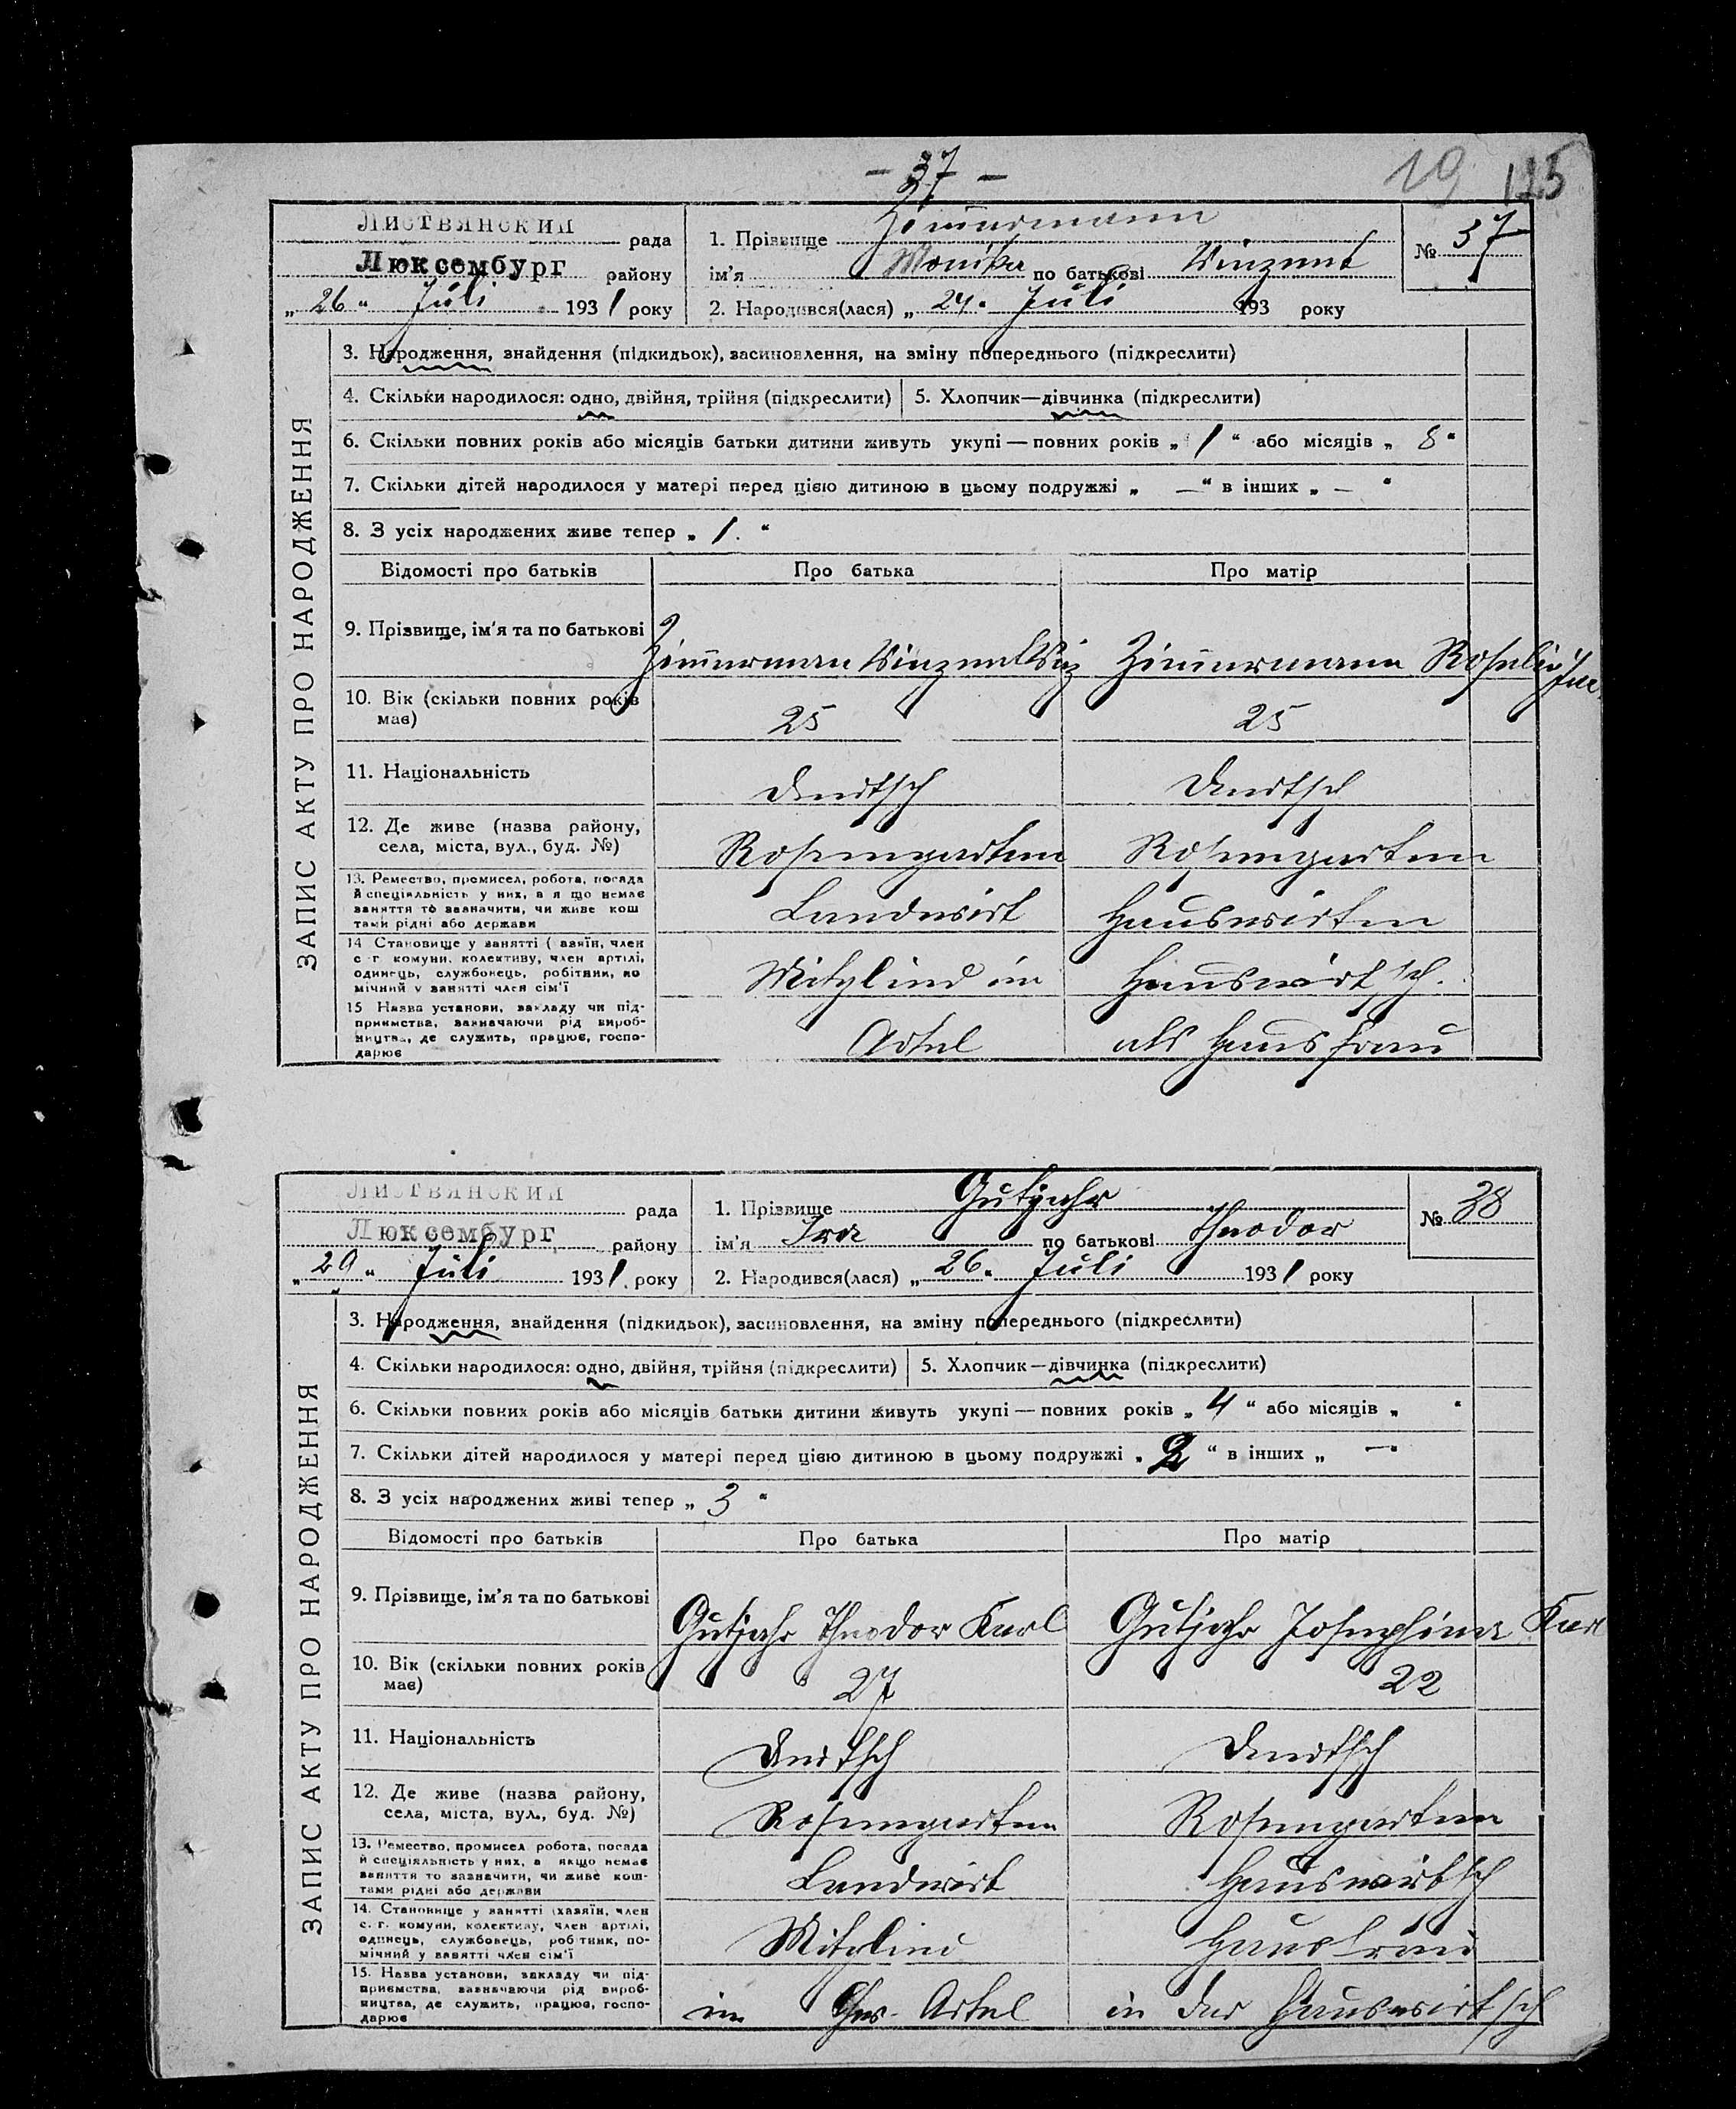 - 37 -
19 125
Листвянский рада
Люксембург району
„ 26 “ Juli 1931 року
1. Прізвище Zimmermann
ім’я Monika по батькові Vinzent
2. Народився(лася) „ 24. Juli 193 року
№ 37
ЗАПИС АКТУ ПРО НАРОДЖЕННЯ
3. Народження, знайдення (підкидьок), засиновлення, на зміну попереднього (підкреслити)
4. Скільки народилося: одно, двійня, трійня (підкреслити) 5. Хлопчик—дівчинка (підкреслити)
6. Скільки повних років або місяців батьки дитини живуть укупі — повних років „ 1 “ або місяців „ 8 “
7. Скільки дітей народилося у матері перед цією дитиною в цьому подружжі „ — “ в інших „ — “
8. З усіх народжених живе тепер „ 1. “
Відомості про батьків Про батька Про матір
9. Прізвище, ім’я та по батькові
Zimmerman Vinzent Zimmermann
10. Вік (скільки повних років
має)
25 25
11. Національність
Deutsch Deutsch
12. Де живе (назва району,
села, міста, вул., буд. №)
Rosengarten Rosengarten
13. Ремество, промисел, робота, посада
й спеціяльність у них, а я що немає
заняття то зазначити, чи живе кош
тами рідні або держави
Landwirt Hauswirten
14 Становище у занятті ( азяїн, член
с г комуни, колективу, член артілі,
одинець, службовець, робітник, по
мічний у занятті член сім’ї
Mitglied im Hauswirtsch.
15 Назва установи, закладу чи під-
приємства, зазначаючи рід вироб-
ництва, де служить, працює, госпо-
дарює
Artel als Hausfrau
Листвянский рада
Люксембург району
„ 29 “ Juli 1931. року
1. Прізвище Gutjahr
ім’я Ira по батькові Theodor
2. Народився(лася) „ 26. Juli 1931 року
№ 38
ЗАПИС АКТУ ПРО НАРОДЖЕННЯ
3. Народження, знайдення (підкидьок), засиновлення, на зміну попереднього (підкреслити)
4. Скільки народилося: одно, двійня, трійня (підкреслити) 5. Хлопчик—дівчинка (підкреслити)
6. Скільки повних років або місяців батьки дитини живуть укупі — повних років „ 4 “ або місяців „ “
7. Скільки дітей народилося у матері перед цією дитиною в цьому подружжі „ 2 “ в інших „ — “
8. З усіх народжених живі тепер „ 3 “
Відомості про батьків Про батька Про матір
9. Прізвище, ім’я та по батькові
Gutjahr Theodor Karl Gutjahr Josephina Karl
10. Вік (скільки повних років
має)
27 22
11. Національність
Deutsch Deutsch
12. Де живе (назва району,
села, міста, вул., буд. №)
Rosengarten Rosengarten
13. Ремество, промисел робота, посада
й спеціяльність у них, а якщо немає
заняття то зазначити, чи живе кош-
тами рідні або держави
Landwirt Hauswirtsch
14. Становище у занятті (хазяїн, член
с. г. комуни, колективу, член артілі,
одинець, службовець, роб тник, по-
мічний у занятті член сім’ї
Mitglied Hausfrau
15. Назва установи, закладу чи під-
приємства, зазначаючи рід вироб-
ництва, де служить, працює, госпо-
дарює
im Artel in der Hauswirtsch